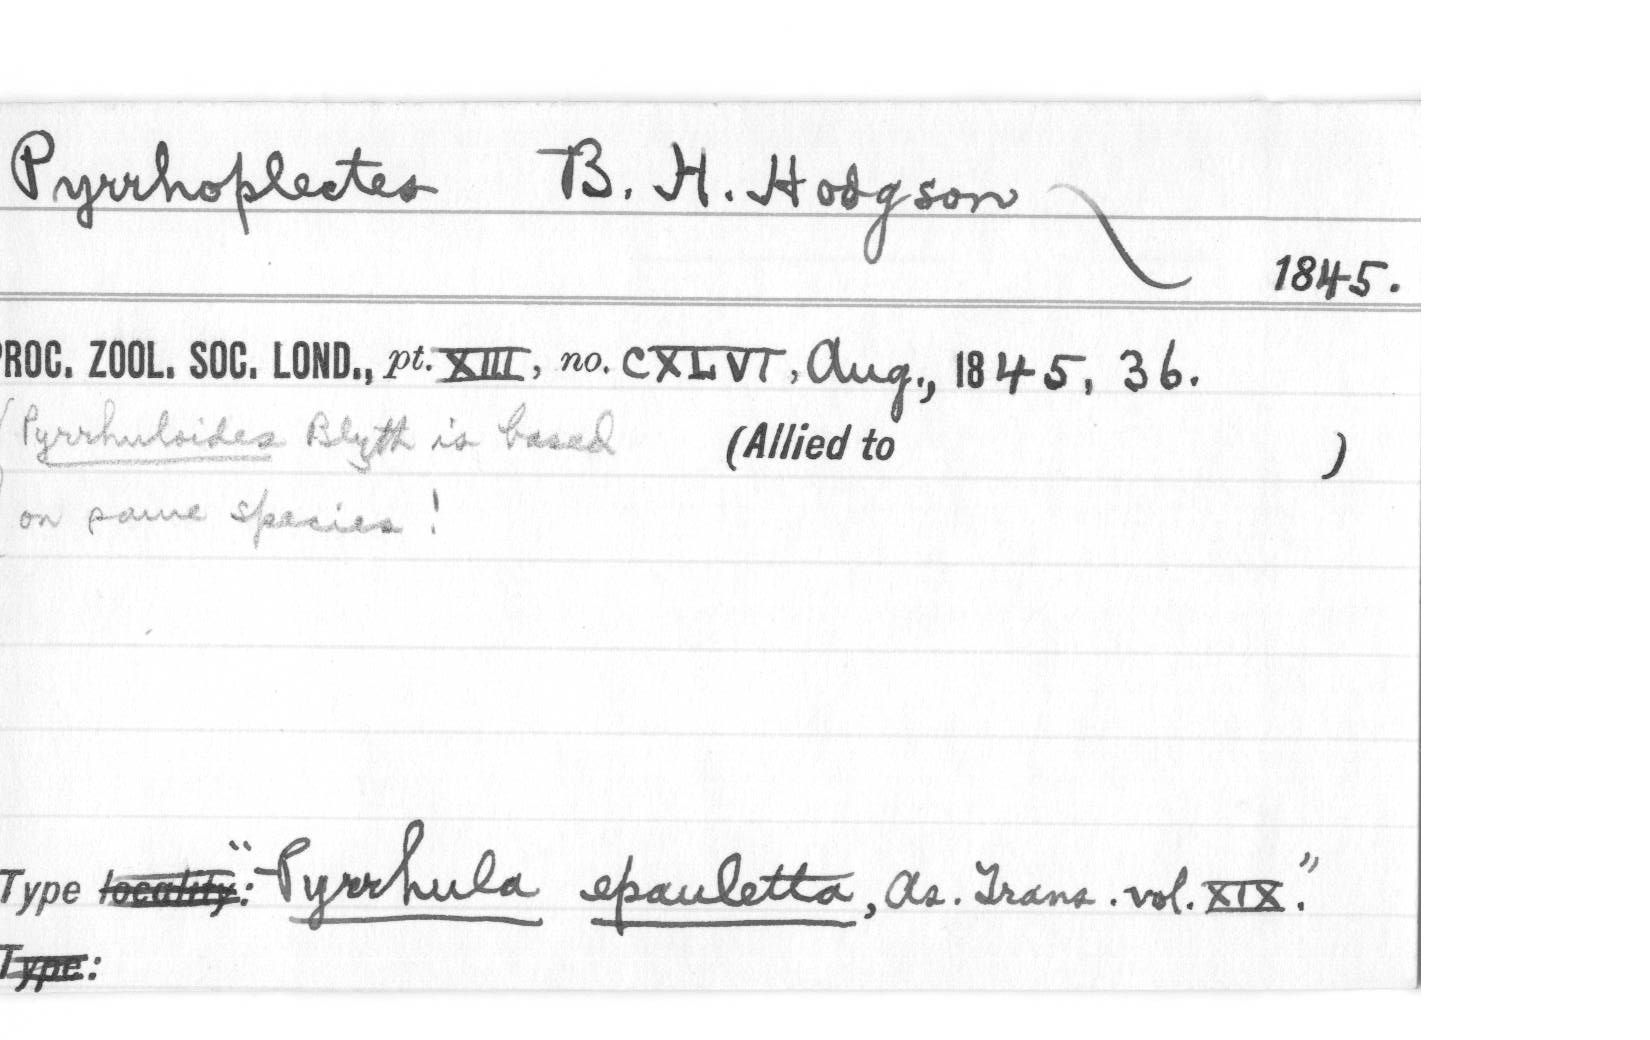 Pyrrhoplectes B. H. Hodgson
1845.
PROC. ZOOL. SOC. LOND., pt. XIII, no. CXLVI, Aug., 1845, 36.
(Pyrrhuloides Blyth is based (Allied to )
on same species!
Type locality: "Pyrrhula epauletta, As. Trans. vol. XIX."
Type: